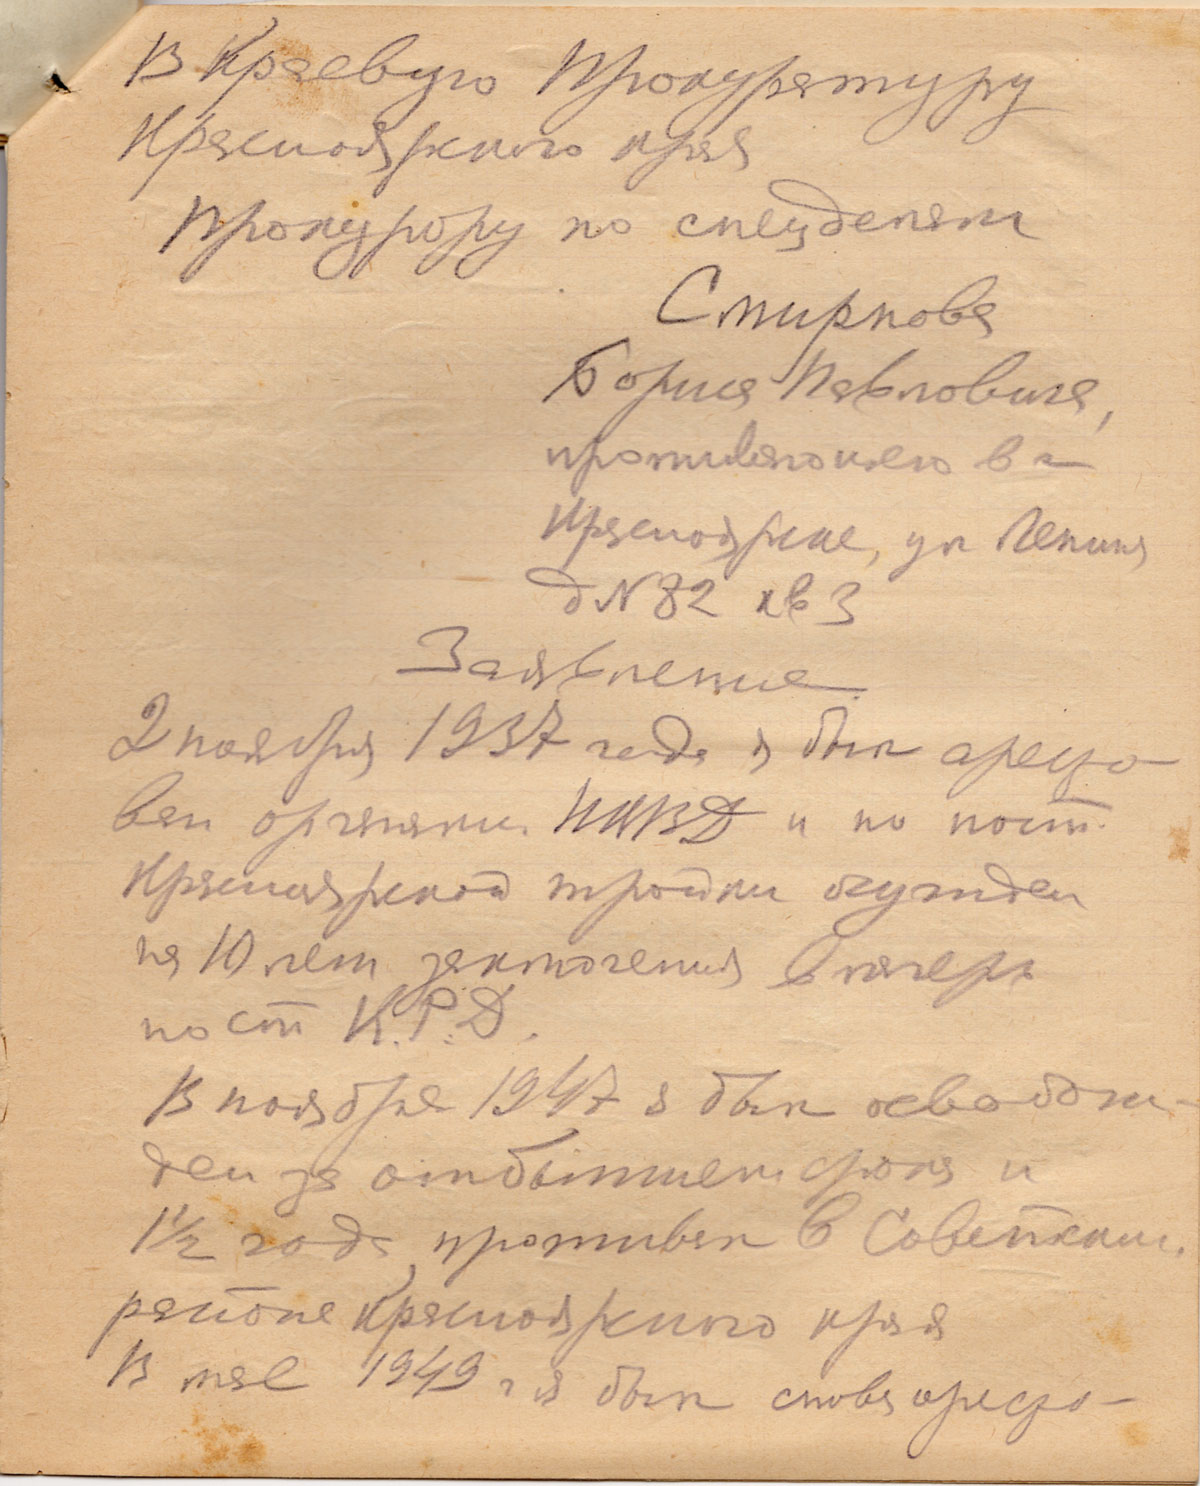 В Краевую Прокуратуру
Красноярского края
Прокурору по спецделам
Смирнова
Бориса Павловича,
проживающего в г
Красноярске, ул Ленина
д N 82 кв 3
Заявление.
2 ноября 1937 года я был аресто-
ван органами НКВД и по пост.
Красноярской тройки осужден
на 10 лет заключения в лагеря
по ст К.Р.Д.
В ноябре 1947 я был освобож-
ден за отбытием срока и
1½ года проживал в Советским
районе Красноярского края
В мае 1949 г я был снова аресто-